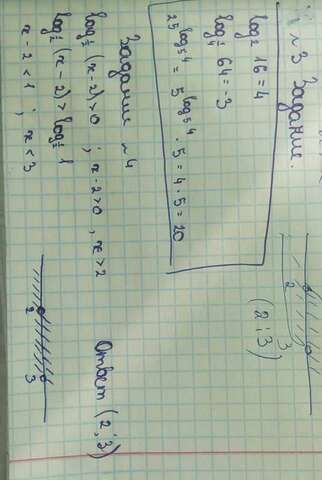 ~ 3 Задание.
log₂ 16 = 4
log_¼ 64 = -3
25^{log₅ 4} = 5^{log₅ 4} · 5 = 4 · 5 = 20
2 3
(2 ; 3)
Задание ~ 4
log_½ (x - 2) > 0 ; x - 2 > 0 , x > 2
log_½ (x - 2) > log_½ 1
x - 2 < 1 ; x < 3
2 3
Ответ (2 ; 3)